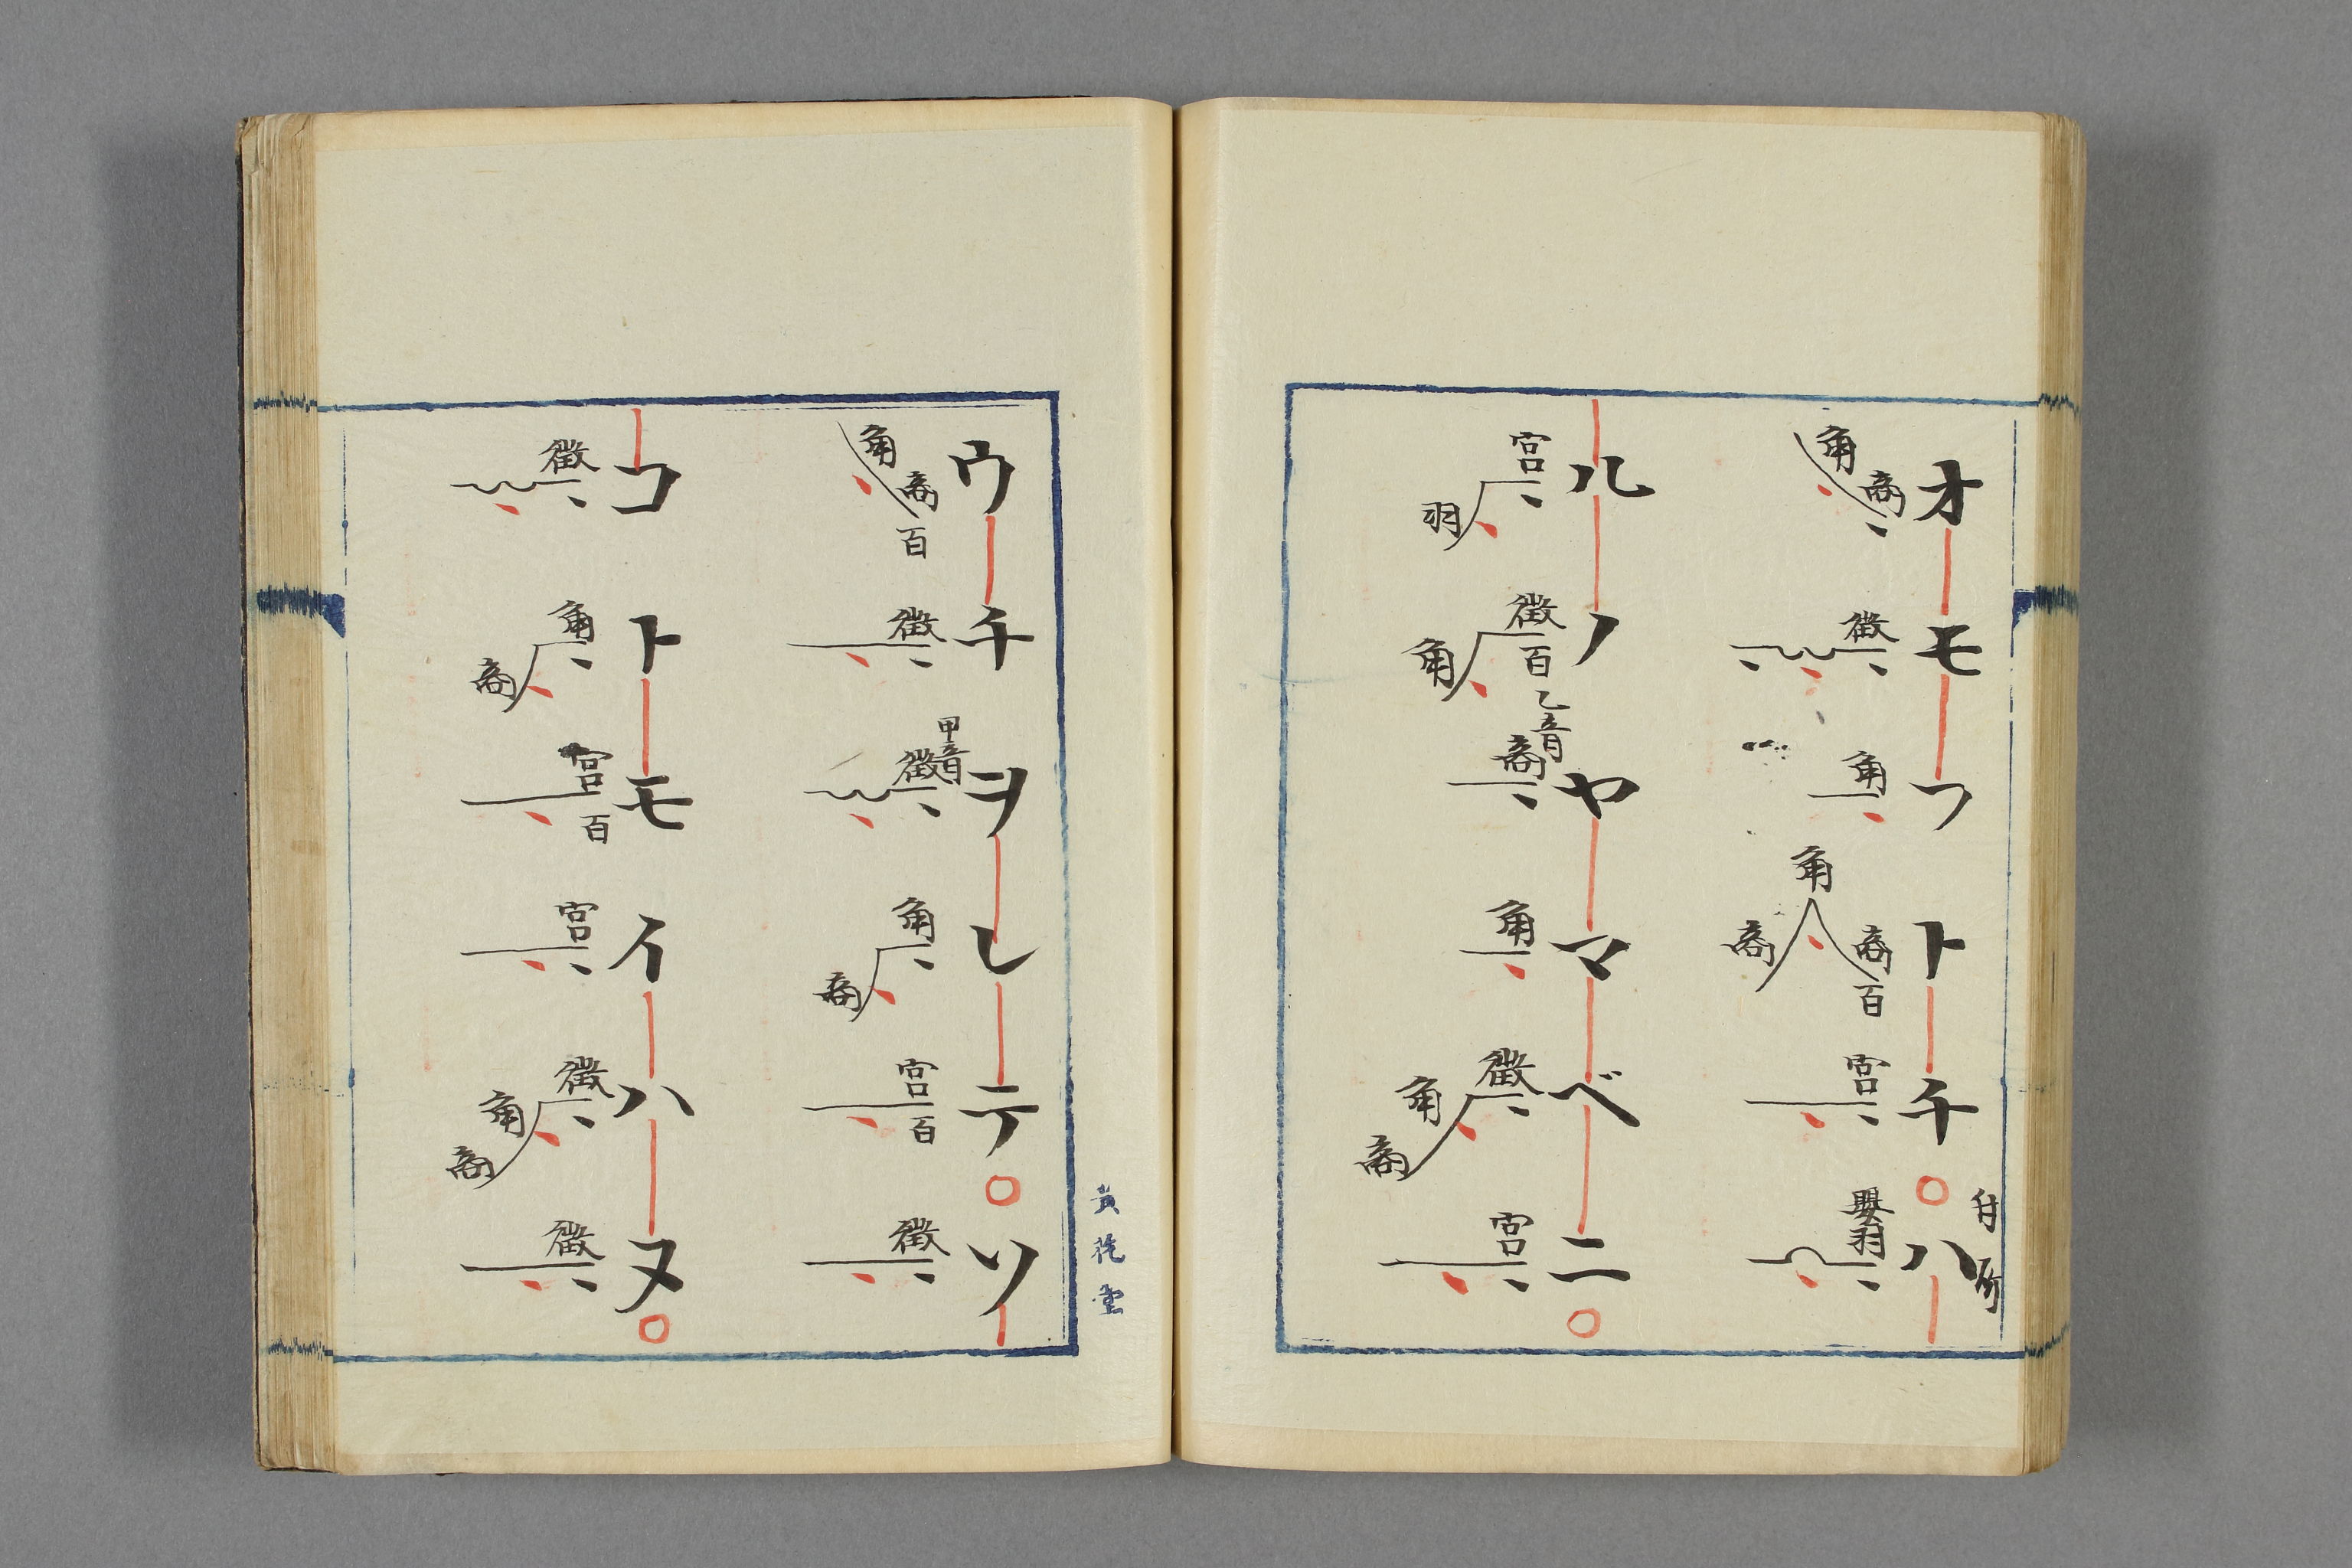 付所
オモフトチ○ハ
角 商 徴 角 商 角 商 百 宮 嬰羽
ルノヤマベニ○
宮 羽 徴 角 百 乙音 商 角 徴 角 商 宮
ウチヲレテ○ソ
角 商 百 徴 甲音 徴 角 商 宮 百 徴
コトモイハヌ○
徴 角 商 宮 百 宮 徴 角 商 徴